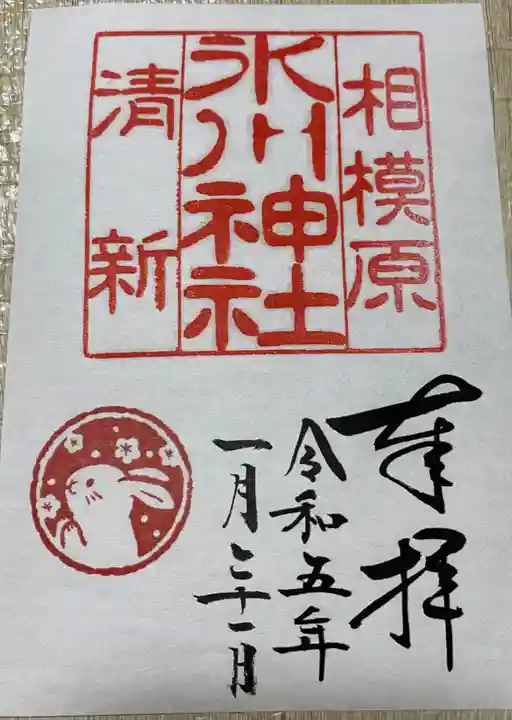 相模原
氷川神社
清新
奉拝
令和五年
一月二十一日